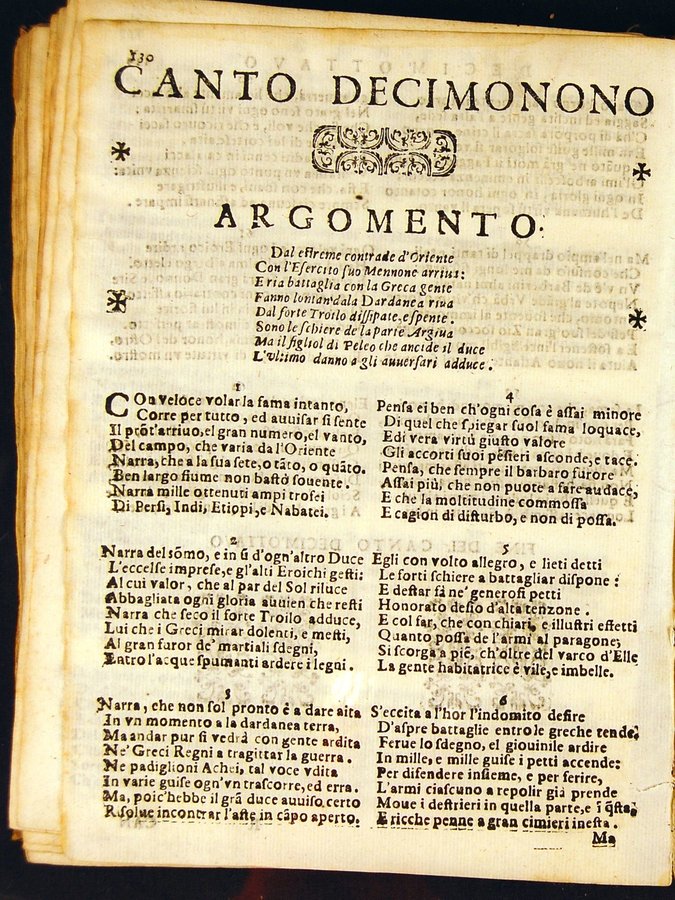 130
CANTO DECIMONONO
ARGOMENTO.
Dal estreme contrade d'Oriente
Con l'Esercito suo Mennone arriua:
E ria battaglia con la Greca gente
Fanno lontan dala Dardanea riua
Dal forte Troilo dissipate, e spente.
Sono le schiere de la parte Argiua
Ma il figliol di Peleo che ancide il duce
L'vltimo danno a gli auuersari adduce.
1
COn veloce volar la fama intanto,
Corre per tutto, ed auuisar si sente
Il prõt'arriuo, el gran numero, el vanto,
Del campo, che varia da l'Oriente
Narra, che a la sua sete, o tãto, o quãto.
Ben largo fiume non bastò souente.
Narra mille ottenuti ampi trofei
Di Persi, Indi, Etiopi, e Nabatei.
2
Narra del sõmo, e in sì d'ogn'altro Duce
L'eccelse imprese, e gl'alti Eroichi gesti:
Al cui valor, che al par del Sol riluce
Abbagliata ogni gloria auuien che resti
Narra che seco il forte Troilo adduce,
Lui che i Greci mirar dolenti, e mesti,
Al gran furor de' martiali sdegni,
Entro l'acque spumanti ardere i legni.
3
Narra, che non sol pronto è a dare aita
In vn momento a la dardanea terra,
Ma andar pur si vedrà con gente ardita
Ne' Greci Regni a tragittar la guerra.
Ne padiglioni Achei, tal voce vdita
In varie guise ogn'vn trascorre, ed erra.
Ma, poic'hebbe il grã duce auuiso certo
Risolue incontrar l'aste in cãpo aperto.
4
Pensa ei ben ch'ogni cosa è assai minore
Di quel che spiegar suol fama loquace,
Ed i verà virtù giusto valore
Gli accorti suoi pẽsieri asconde, e tace.
Pensa, che sempre il barbaro furore
Assai più, che non puote a fare audace,
E che la moltitudine commossa
E cagion di disturbo, e non di possa.
5
Egli con volto allegro, e lieti detti
Le forti schiere a battagliar dispone:
E destar fà ne' generosi petti
Honorato desio d'alta tenzone.
E col far, che con chiari, e illustri effetti
Quanto possa de l'armi al paragone,
Si scorga a piẽ, ch'oltre del varco d'Elle
La gente habitatrice è vile, e imbelle.
6
S'eccita a l'hor l'indomito desire
D'aspre battaglie entro le greche tende,
Ferue lo sdegno, el giouinile ardire
In mille, e mille guise i petti accende:
Per difendere insieme, e per ferire,
L'armi ciascuno a repolir già prende
Moue i destrieri in quella parte, e ĩ q̃sta,
E ricche penne a gran cimieri inesta.
Ma